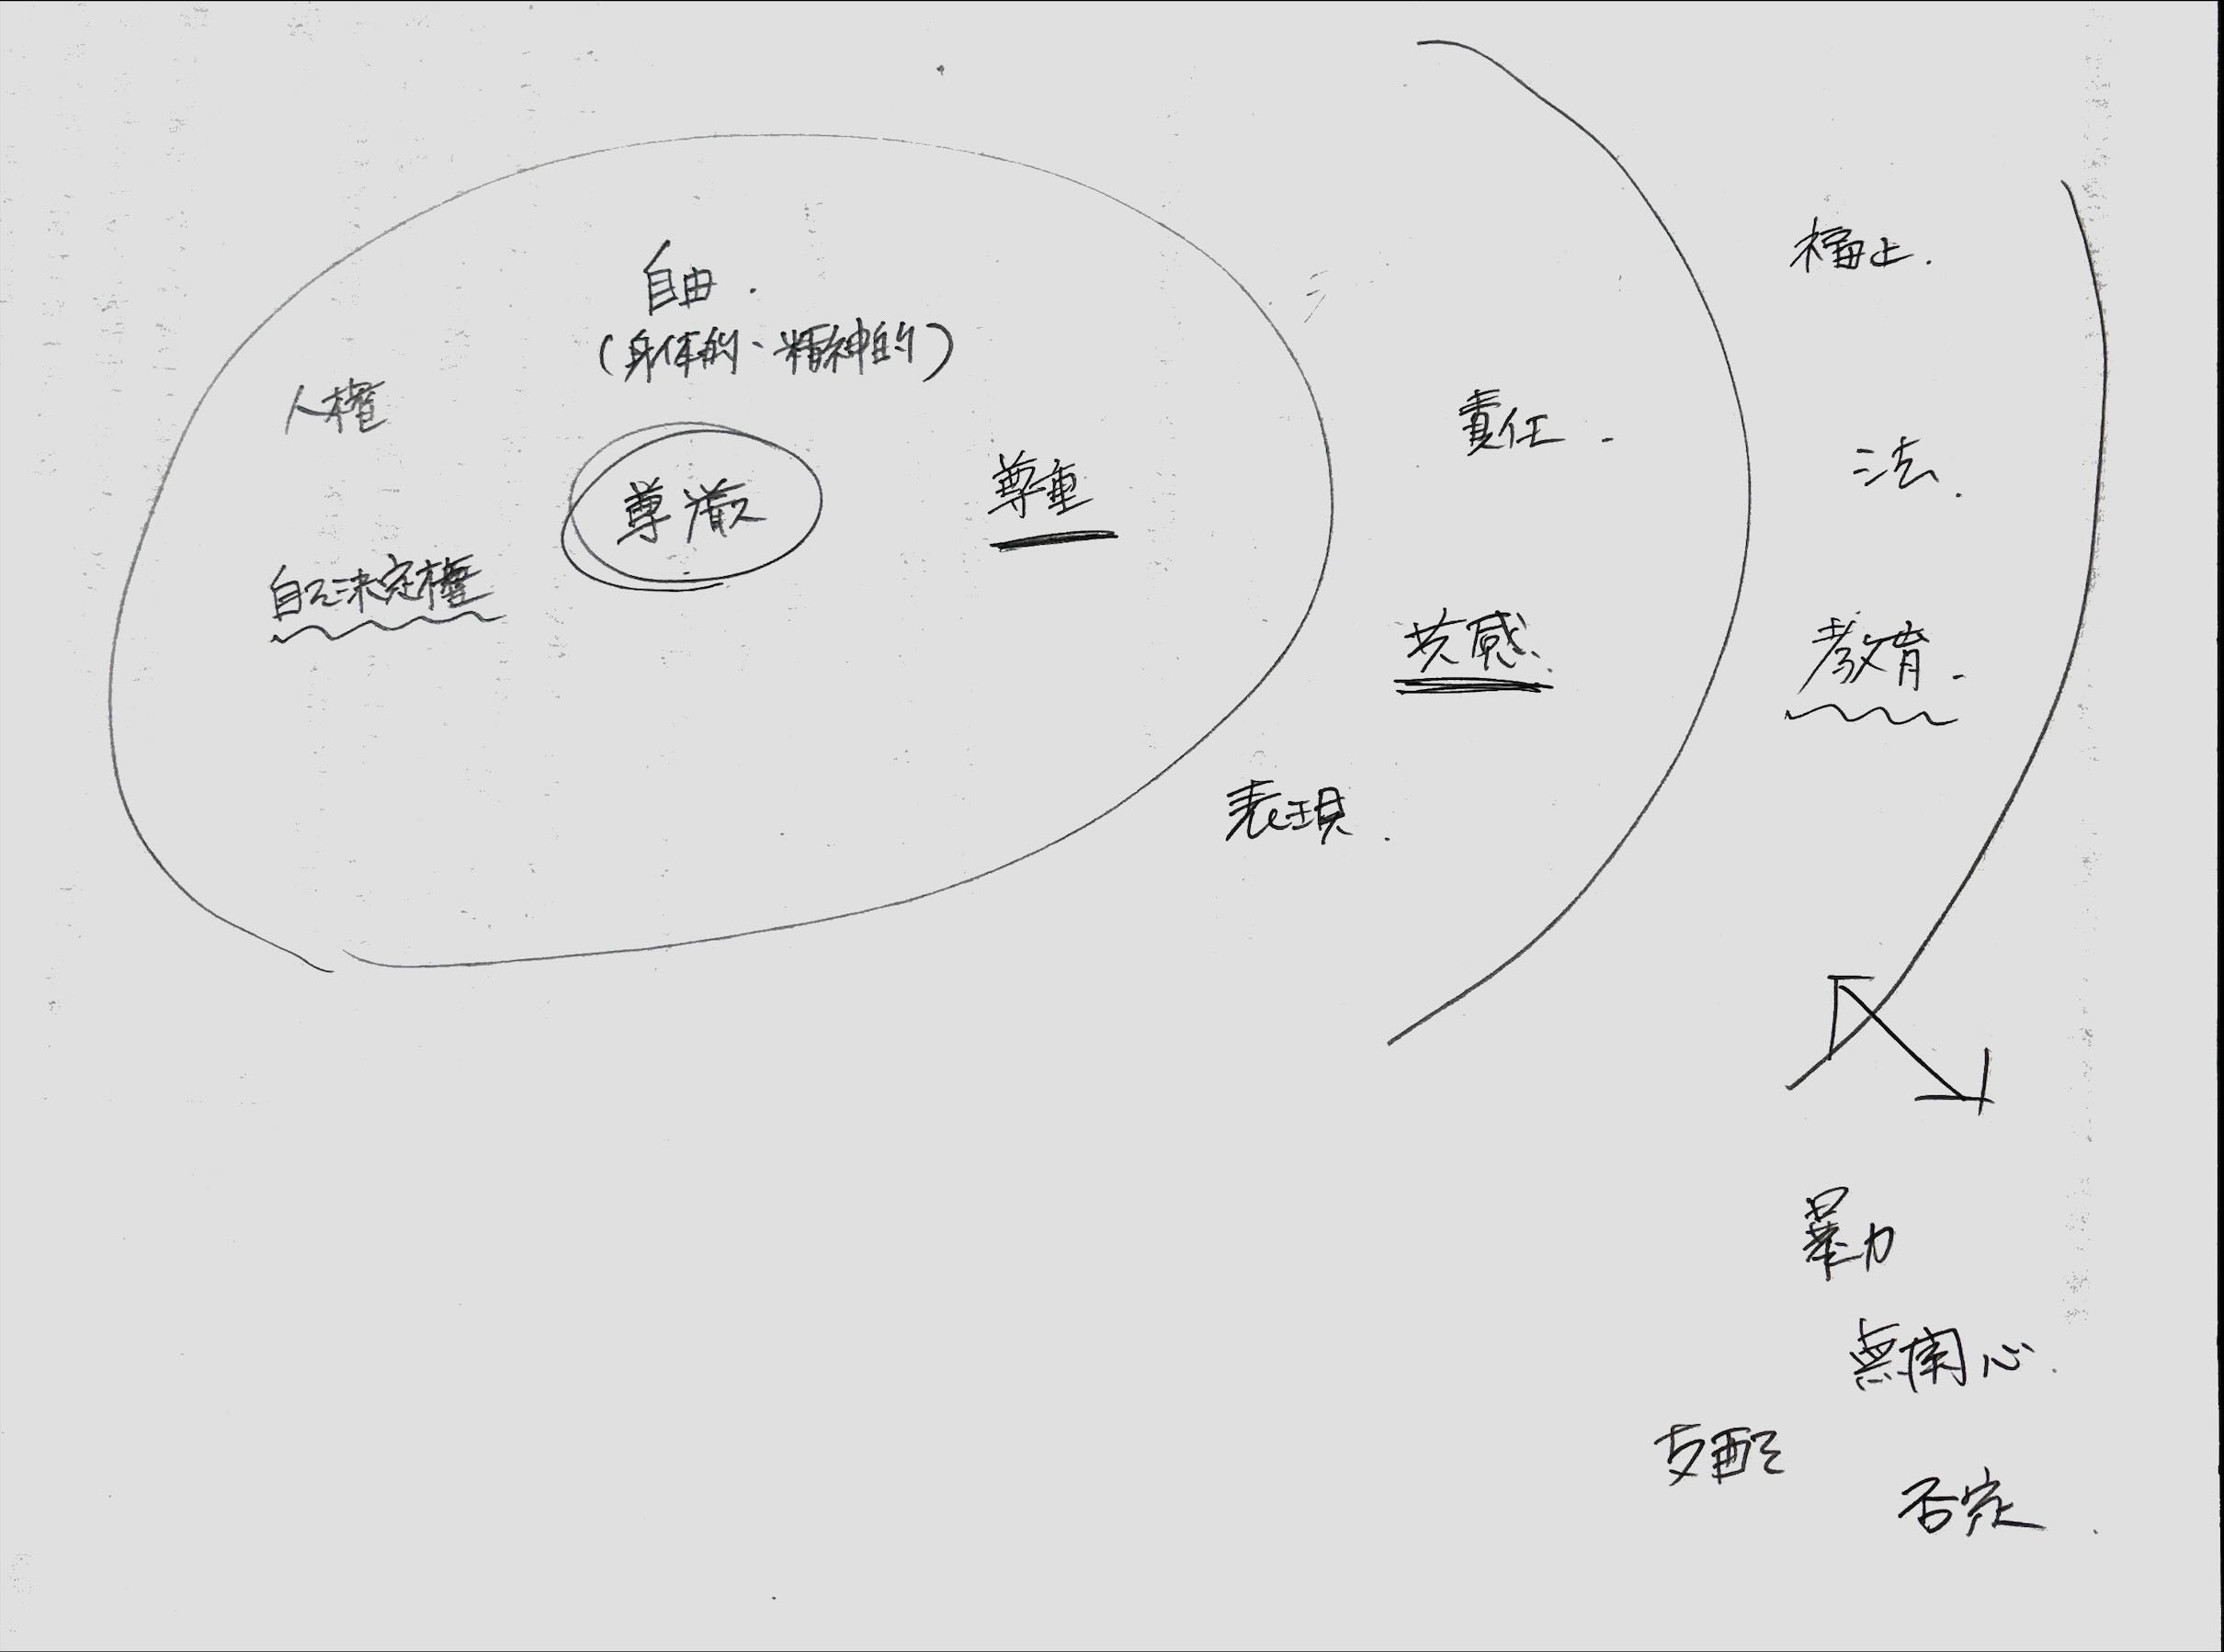 自由.
(身体的・精神的)
人権
尊厳
尊重
自己決定権
責任.
共感.
表現.
福止.
法.
教育.
暴力
無関心.
支配
否定.